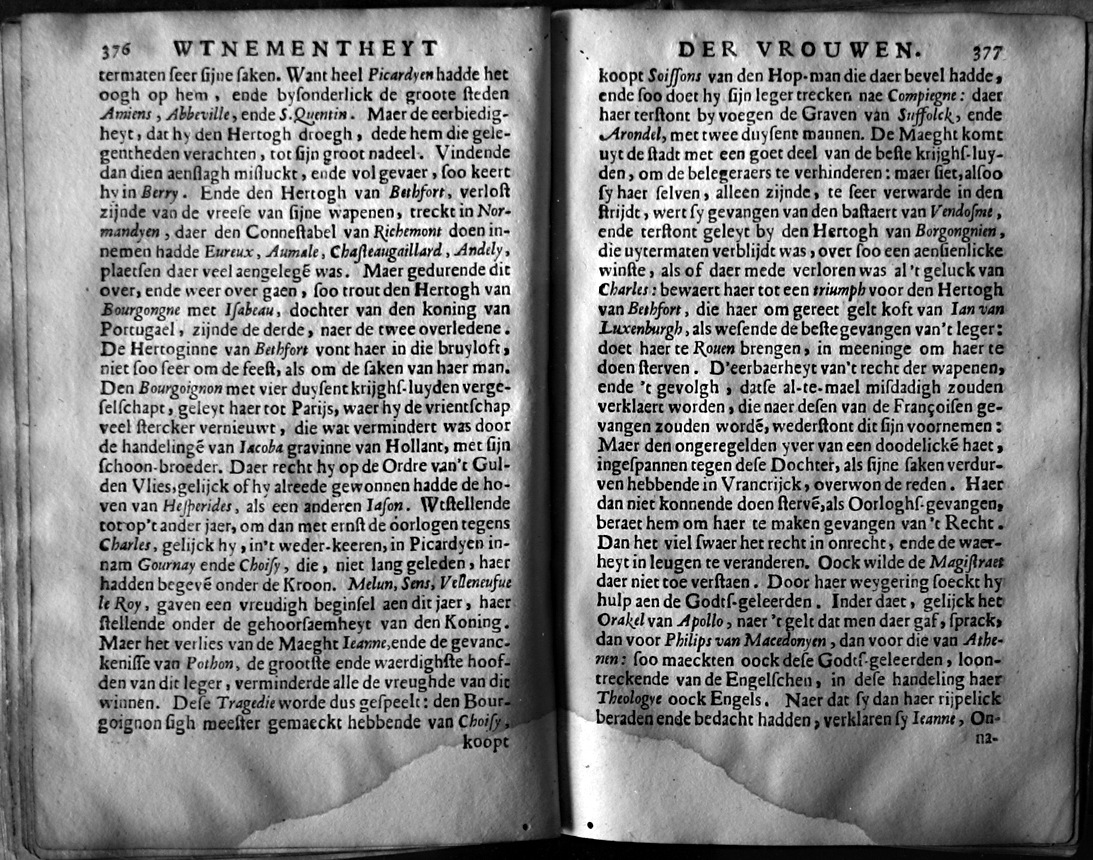 376 WTNEMENTHEYT
termaten ſeer ſijne ſaken. Want heel Picardyen hadde het
oogh op hem, ende byſonderlick de groote ſteden
Amiens, Abbeville, ende S. Quentin. Maer de eerbiedig-
heyt, dat hy den Hertogh droegh, dede hem die gele-
gentheden verachten, tot ſijn groot nadeel. Vindende
dan dien aenſlagh miſluckt, ende vol gevaer, ſoo keert
hy in Berry. Ende den Hertogh van Bethfort, verloſt
zijnde van de vreeſe van ſijne wapenen, treckt in Nor-
mandyen, daer den Conneſtabel van Richemont doen in-
nemen hadde Eureux, Aumale, Chaſteaugaillard, Andely,
plaetſen daer veel aengelegē was. Maer gedurende dit
over, ende weer over gaen, ſoo trout den Hertogh van
Bourgongne met Iſabeau, dochter van den koning van
Portugael, zijnde de derde, naer de twee overledene.
De Hertoginne van Bethfort vont haer in die bruyloft,
niet ſoo ſeer om de feeſt, als om de ſaken van haer man.
Den Bourgoignon met vier duyſent krijghſ-luyden verge-
ſelſchapt, geleyt haer tot Parijs, waer hy de vrientſchap
veel ſtercker vernieuwt, die wat vermindert was door
de handelingē van Iacoba gravinne van Hollant, met ſijn
ſchoon-broeder. Daer recht hy op de Ordre van't Gul-
den Vlies, gelijck of hy alreede gewonnen hadde de ho-
ven van Heſperides, als een anderen Iaſon. Wtſtellende
tot op't ander jaer, om dan met ernſt de oorlogen tegens
Charles, gelijck hy, in't weder-keeren, in Picardyen in-
nam Gournay ende Choiſy, die, niet lang geleden, haer
hadden begevē onder de Kroon. Melun, Sens, Velleneufue
le Roy, gaven een vreudigh beginſel aen dit jaer, haer
ſtellende onder de gehoorſaemheyt van den Koning.
Maer het verlies van de Maeght Ieanne, ende de gevanc-
keniſſe van Pothon, de grootſte ende waerdighſte hoof-
den van dit leger, verminderde alle de vreughde van dit
winnen. Deſe Tragedie worde dus geſpeelt: den Bour-
goignon ſigh meeſter gemaeckt hebbende van Choiſy,
koopt
DER VROUWEN. 377
koopt Soiſſons van den Hop-man die daer bevel hadde,
ende ſoo doet hy ſijn leger trecken nae Compiegne: daer
haer terſtont by voegen de Graven van Suffolck, ende
Arondel, met twee duyſent mannen. De Maeght komt
uyt de ſtadt met een goet deel van de beſte krijghſ-luy-
den, om de belegeraers te verhinderen: maer ſiet, alſoo
ſy haer ſelven, alleen zijnde, te ſeer verwarde in den
ſtrijdt, wert ſy gevangen van den baſtaert van Vendoſme,
ende terſtont geleyt by den Hertogh van Borgongnien,
die uytermaten verblijdt was, over ſoo een aenſienlicke
winſte, als of daer mede verloren was al't geluck van
Charles: bewaert haer tot een triumph voor den Hertogh
van Bethfort, die haer om gereet gelt koft van Ian van
Luxenburgh, als weſende de beſte gevangen van't leger:
doet haer te Rouen brengen, in meeninge om haer te
doen ſterven. D'eerbaerheyt van't recht der wapenen,
ende 't gevolgh, datſe al-te-mael miſdadigh zouden
verklaert worden, die naer deſen van de Françoiſen ge-
vangen zouden wordē, wederſtont dit ſijn voornemen:
Maer den ongeregelden yver van een doodelickē haet,
ingeſpannen tegen deſe Dochter, als ſijne ſaken verdur-
ven hebbende in Vrancrijck, overwon de reden. Haer
dan niet konnende doen ſtervē, als Oorloghſ-gevangen,
beraet hem om haer te maken gevangen van 't Recht.
Dan het viel ſwaer het recht in onrecht, ende de waer-
heyt in leugen te veranderen. Oock wilde de Magiſtraet
daer niet toe verſtaen. Door haer weygering ſoeckt hy
hulp aen de Godtſ-geleerden. Inder daet, gelijck het
Orakel van Apollo, naer 't gelt dat men daer gaf, ſprack,
dan voor Philips van Macedonyen, dan voor die van Athe-
nen: ſoo maeckten oock deſe Godtſ-geleerden, loon-
treckende van de Engelſchen, in deſe handeling haer
Theologye oock Engels. Naer dat ſy dan haer rijpelick
beraden ende bedacht hadden, verklaren ſy Ieanne, On-
na-